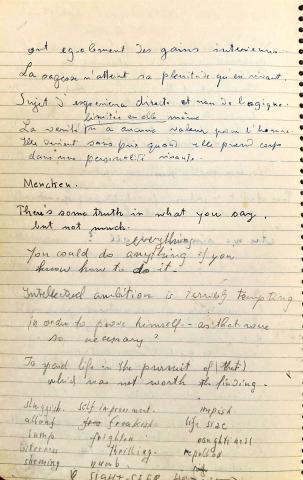 ont egalement des gains interieurs.
La sagesse n'atteint sa plenitude qu'en vivant.
Sujet d'experience directe et non de logique.
limitée en elle même
La verité n a aucune valeur pour l'homme.
Elle devient quand elle prend corps
dans une personalité vivante.
Mencken.
There's some truth in what you say,
but not much.
everything
You could do anything if you
know how to do it.
Intellectual ambition is terribly tempting
In order to prove himself - as that were
so necessary?
To spend life in the pursuit of (that)
which was not worth the finding.
sluggish self improvement. impish
afloat freakish life size
lump frighten naughtiness
thrilling repelled
scheming numb